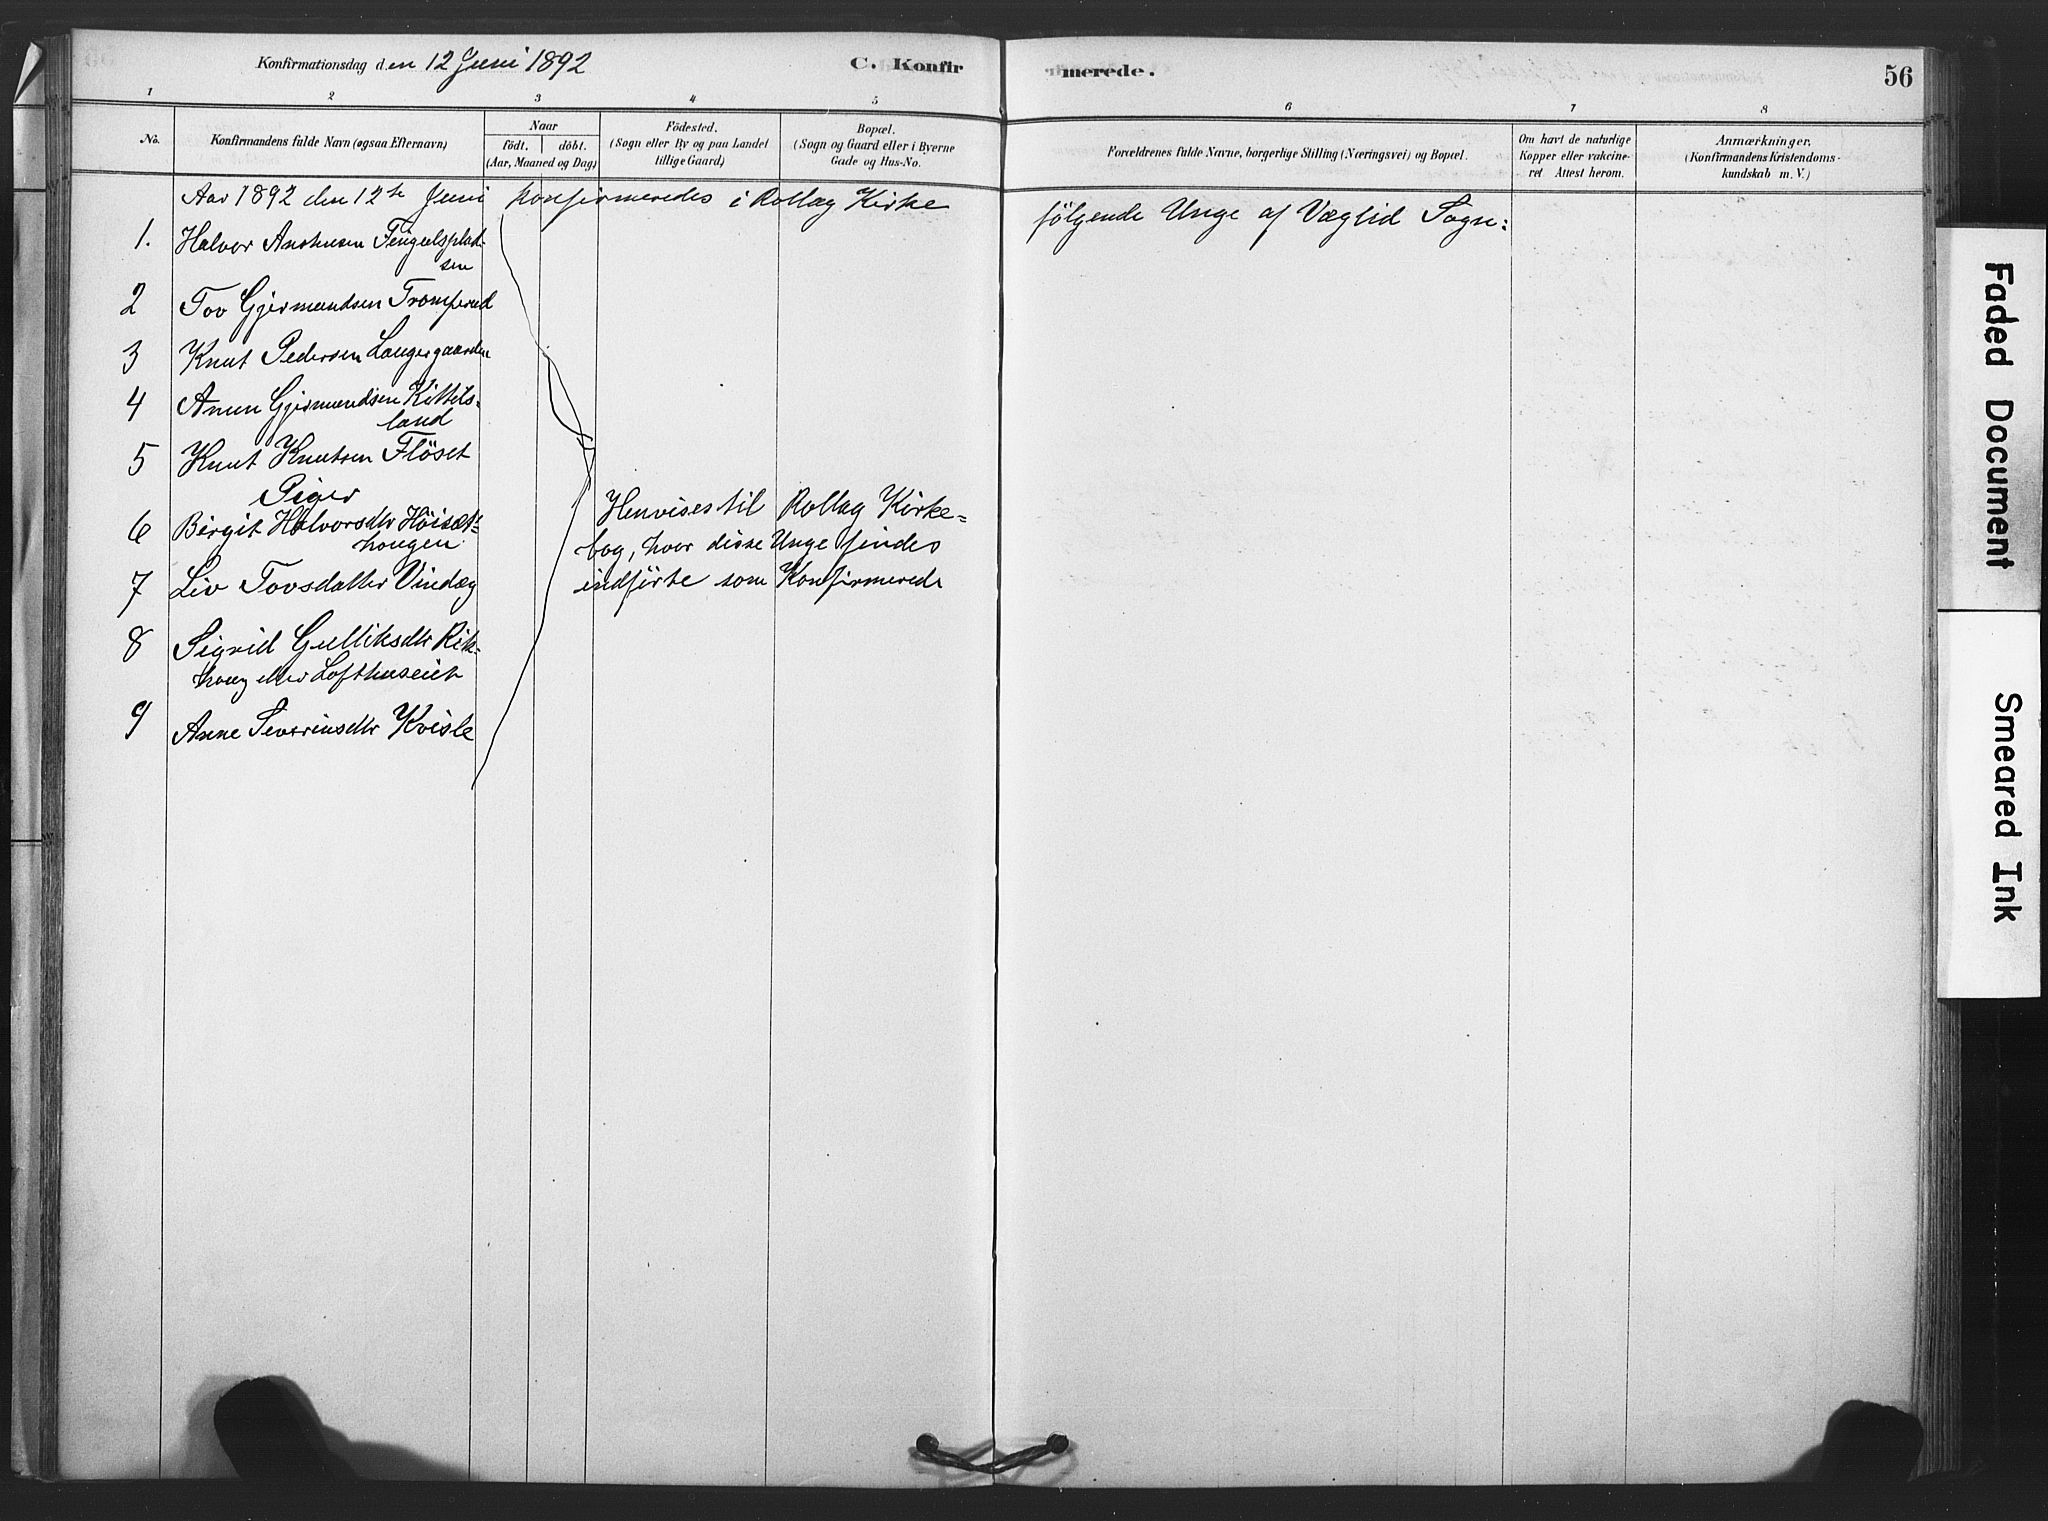 Konfirmationsdag den 12 Juni 1892
C. Konfir
merede.
56
1 2 3 4 5 6 7 8
No.
Konfirmandens fulde Navn (ogsaa Efternavn)
Naar
födt. döbt.
(Aar, Maaned og Dag)
Födested.
(Sogn eller By og paa Landet
tillige Gaard)
Bopæl.
(Sogn og Gaard eller i Byerne
Gade og Hus-No.
Forældrenes fulde Navne, borgerlige Stilling (Næringsvei) og Bopæl.
Om havt de naturlige
Kopper eller vakcine-
ret Attest herom.
Anmærkninger,
(Konfirmandens Kristendoms-
kundskab m. V.)
Aar 1892 den 12te Juni konfirmeredes i Rollag Kirke
følgende Unge af Væglid Sogn:
1. Halvor
sen
2 Tov Gjermundsen
3 Knut Pedersen Laugergaarden
4 Amun Gjermundsen Kittils-
land
5 Knut Knutsen Flöset
Piger
6 Birgit Halvorsdtr Höisæt-
hougen
7 Liv Tovsdatter Vindæg
8 Sigrid Gulliksdtr
eller Lofthuseiet
9 Anne Severinsdtr Kvisle
Henvises til Rollag Kirke-
bog, hvor disse Unge findes
indförte som Konfirmerede
Faded Document
Smeared Ink